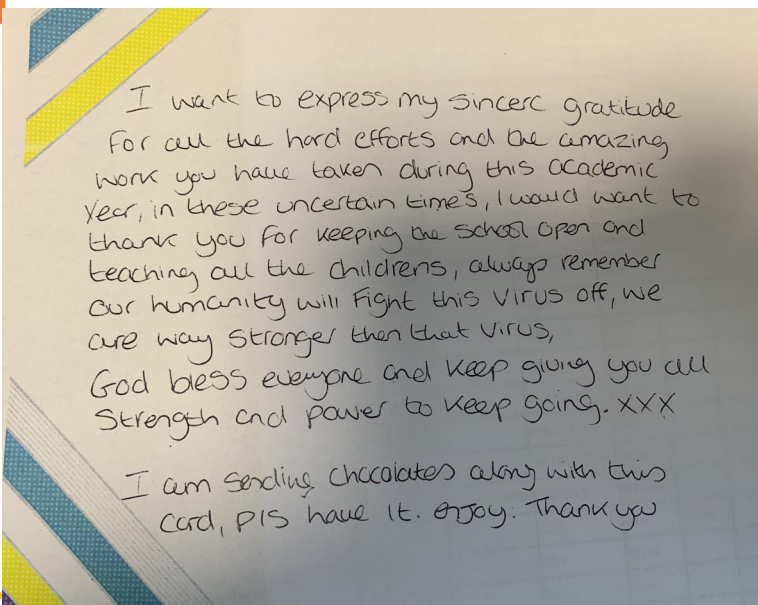 I want to express my sincere gratitude
For all the hard efforts and the amazing
work you have taken during this academic
Year, in these uncertain times, I would want to
thank you for keeping the school open and
teaching all the childrens, always remember
our humanity will Fight this Virus off, we
are way stronger then that virus,
God bless everyone and keep giving you all
Strength and power to keep going. XXX
I am sending chocolates along with this
card, pls have it. enjoy. Thank you